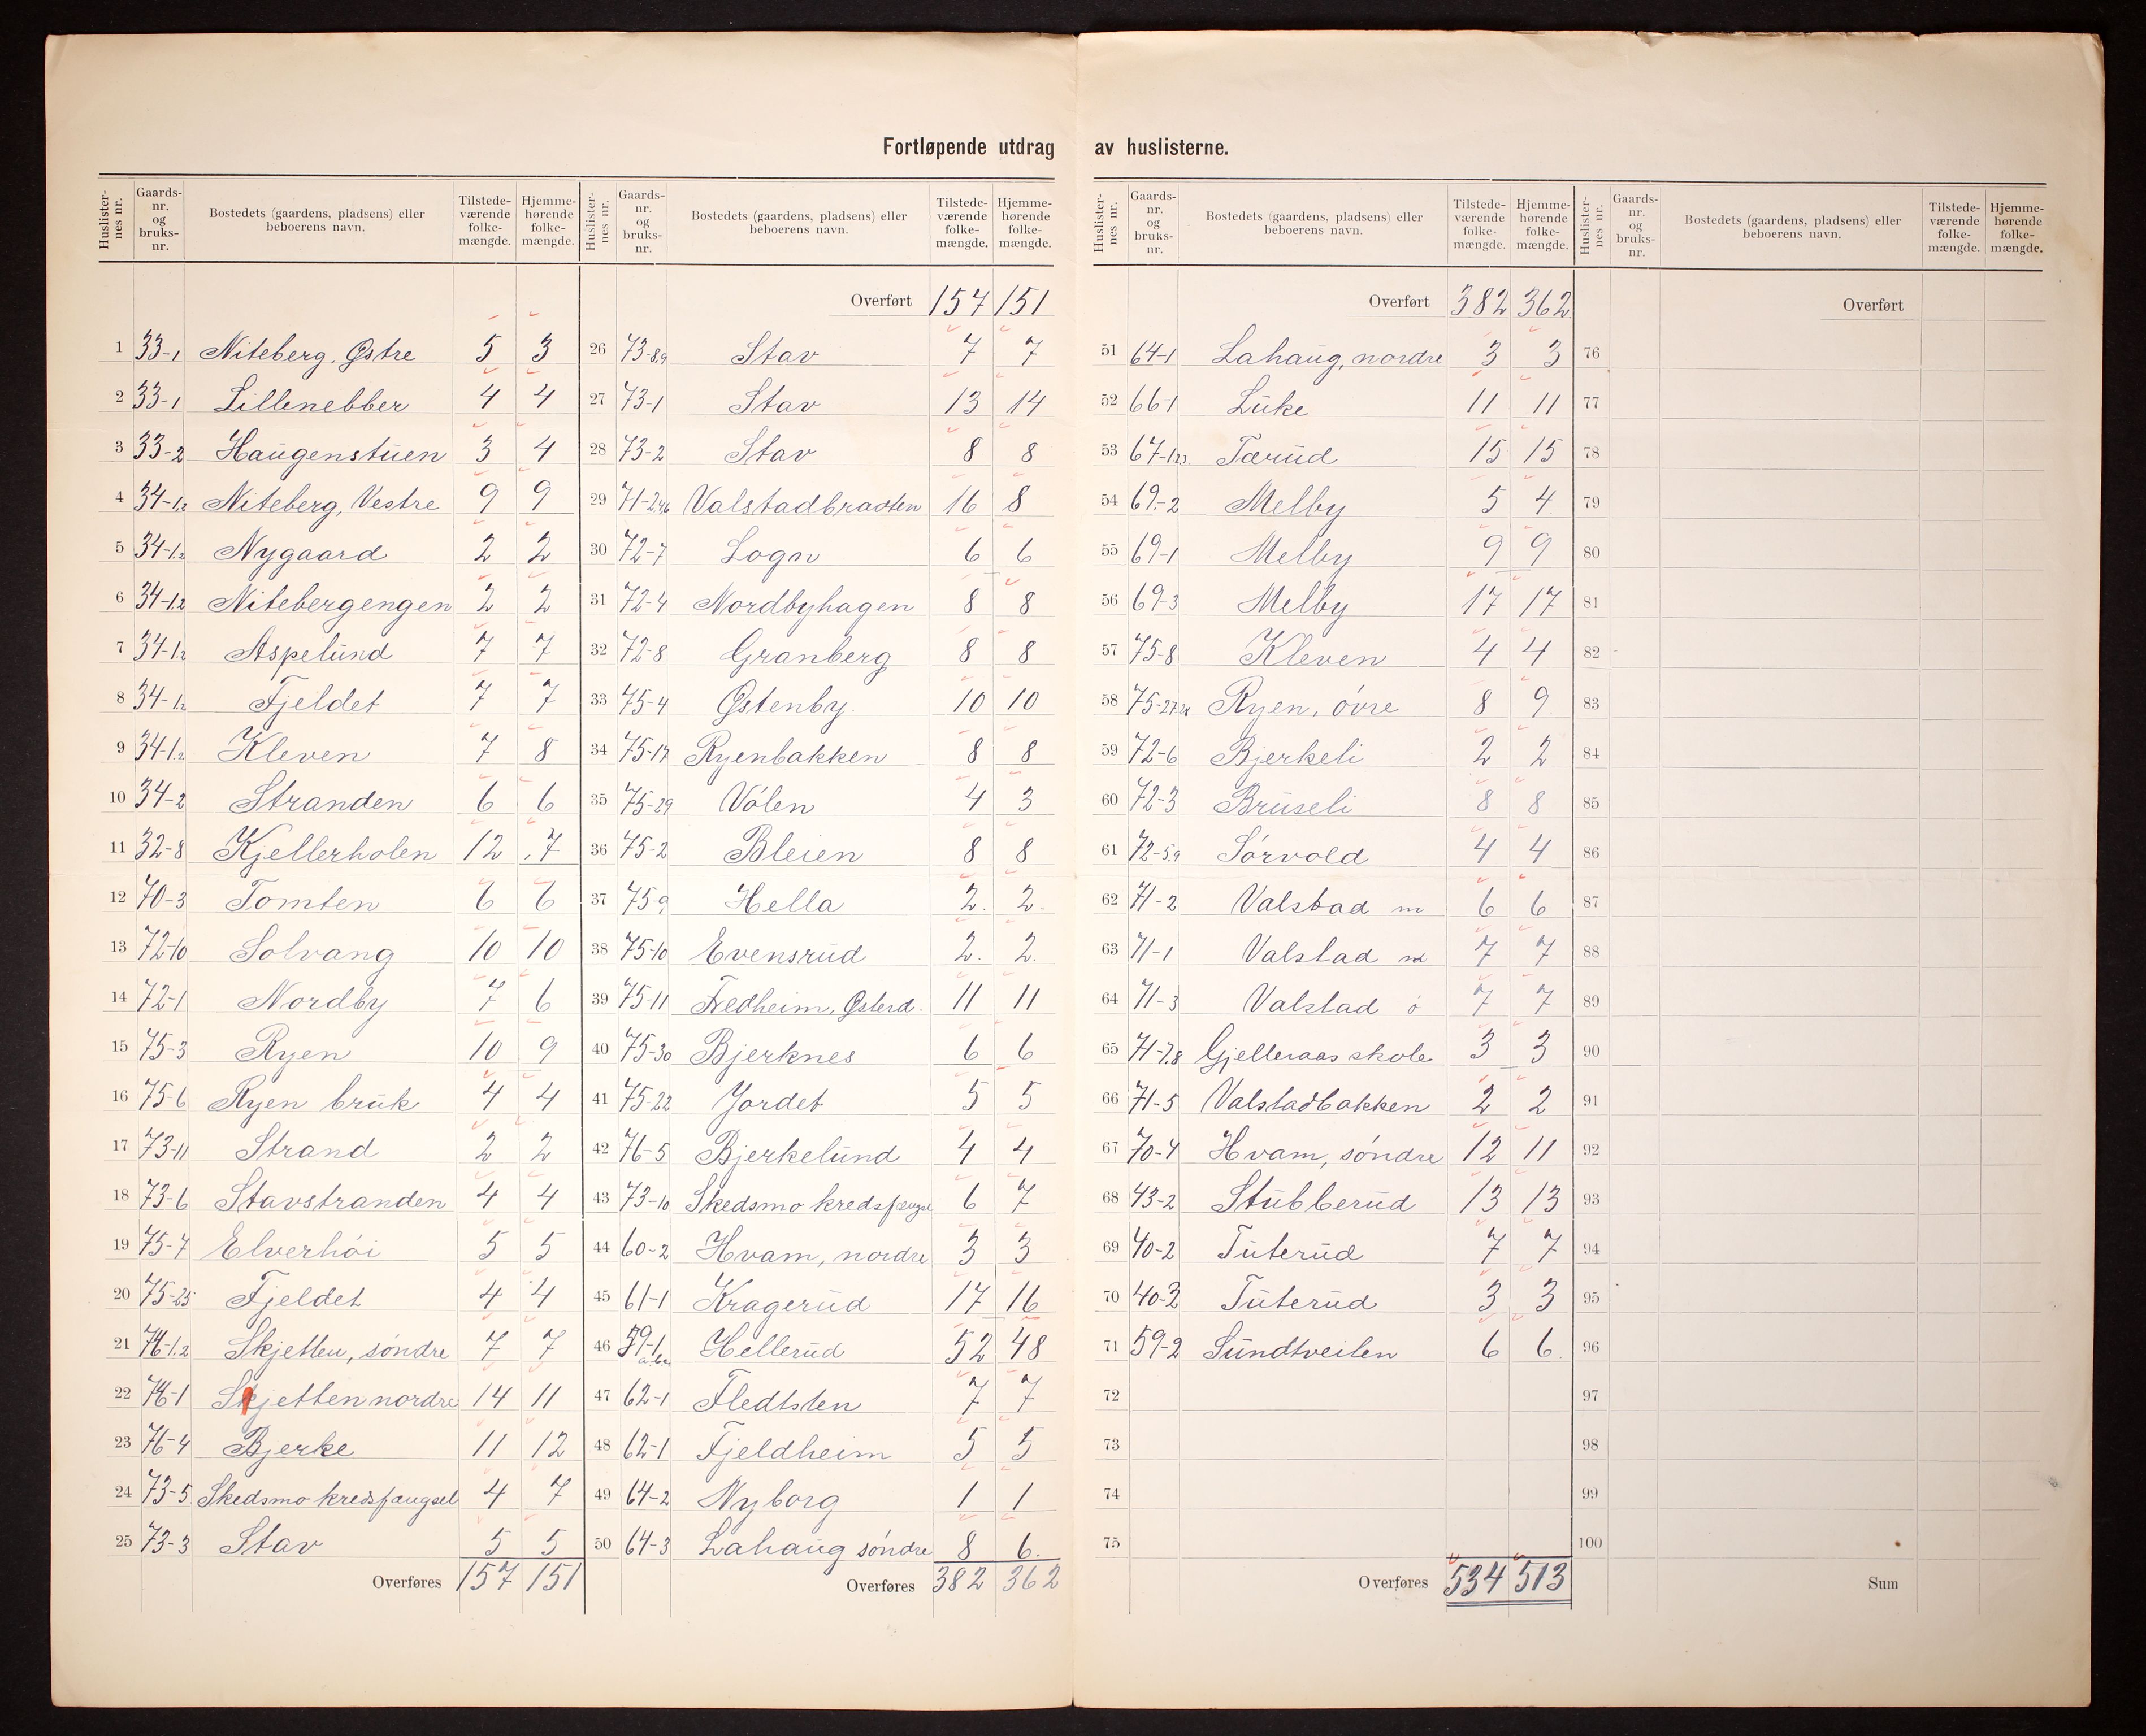 Fortløpende utdrag av huslisterne.
Huslister-nes nr. | Gaards-nr. og bruks-nr. | Bostedets (gaardens, pladsens) eller beboerens navn. | Tilstede-værende folke-mængde. | Hjemme-hørende folke-mængde.
1 33-1 Niteberg, Østre 5 3
2 33-1 Lillenebber 4 4
3 33-2 Haugenstuen 3 4
4 34-1,2 Niteberg, Vestre 9 9
5 34-1,2 Nygaard 2 2
6 34-1,2 Nitebergengen 2 2
7 34-1,2 Aspelund 7 7
8 34-1,2 Fjeldet 7 7
9 34-1,2 Kleven 7 8
10 34-2 Stranden 6 6
11 32-8 Kjellerholen 12 7
12 70-3 Tomten 6 6
13 72-10 Solvang 10 10
14 72-1 Nordby 7 6
15 75-3 Ryen 10 9
16 75-6 Ryen bruk 4 4
17 73-11 Strand 2 2
18 73-6 Stavstranden 4 4
19 75-7 Elverhöi 5 5
20 75-25 Fjeldet 4 4
21 Skjetten, söndre 7 7
22 Skjetten nordre 14 11
23 76-4 Bjerke 11 12
24 73-5 Skedsmo kredsfængsel 4 7
25 73-3 Stav 5 5
Overføres 157 151
Huslister-nes nr. | Gaards-nr. og bruks-nr. | Bostedets (gaardens, pladsens) eller beboerens navn. | Tilstede-værende folke-mængde. | Hjemme-hørende folke-mængde.
Overført 157 151
26 73-8,9 Stav 7 7
27 73-1 Stav 13 14
28 73-2 Stav 8 8
29 Valstadbraaten 16 8
30 72-7 Logn 6 6
31 72-4 Nordbyhagen 8 8
32 72-8 Granberg 8 8
33 75-4 Østenby 10 10
34 75-17 Ryenbakken 8 8
35 75-29 Völen 4 3
36 75-2 Bleien 8 8
37 75-9 Hella 2. 2.
38 75-10 Evensrud 2. 2.
39 75-11 Fredheim, Østerd. 11 11
40 75-30 Bjerknes 6 6
41 75-22 Jordet 5 5
42 76-5 Bjerkelund 4 4
43 73-10 Skedsmo kredsfængsel 6 7
44 60-2 Hvam, nordre 3 3
45 61-1 Kragerud 17 16
46 59-1 Hellerud 52 48
47 62-1 Fledtsten 7 7
48 62-1 Fjeldheim 5 5
49 64-2 Nyborg 1 1
50 64-3 Lahaug söndre 8 6.
Overføres 382 362
Huslister-nes nr. | Gaards-nr. og bruks-nr. | Bostedets (gaardens, pladsens) eller beboerens navn. | Tilstede-værende folke-mængde. | Hjemme-hørende folke-mængde.
Overført 382 362
51 64-1 Lahaug, nordre 3 3
52 66-1 Luke 11 11
53 Tærud 15 15
54 69-2 Melby 5 4
55 69-1 Melby 9 9
56 69-3 Melby 17 17
57 75-8 Kleven 4 4
58 Ryen, övre 8 9
59 72-6 Bjerkeli 2 2
60 72-3 Bruseli 8 8
61 72-5,9 Sörvold 4 4
62 71-2 Valstad m 6 6
63 71-1 Valstad 7 7
64 71-3 Valstad ö 7 7
65 71-7,8 Gjelleraas skole 3 3
66 71-5 Valstadbakken 2 2
67 70-4 Hvam, söndre 12 11
68 43-2 Stubberud 13 13
69 40-2 Tuterud 7 7
70 40-3 Tuterud 3 3
71 59-2 Sundtveilen 6 6.
72
73
74
75
Overføres 534 513
Huslister-nes nr. | Gaards-nr. og bruks-nr. | Bostedets (gaardens, pladsens) eller beboerens navn. | Tilstede-værende folke-mængde. | Hjemme-hørende folke-mængde.
Overført
76
77
78
79
80
81
82
83
84
85
86
87
88
89
90
91
92
93
94
95
96
97
98
99
100
Sum